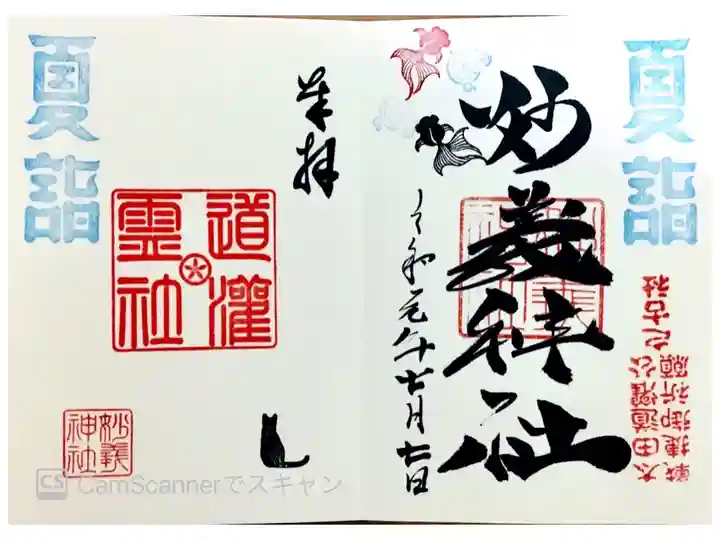 夏詣
太田道灌公
戦捷御祈願之古社
妙義神社
令和元年七月七日
奉拝
道灌
霊社
夏詣
妙義
神社
CS CamScannerでスキャン